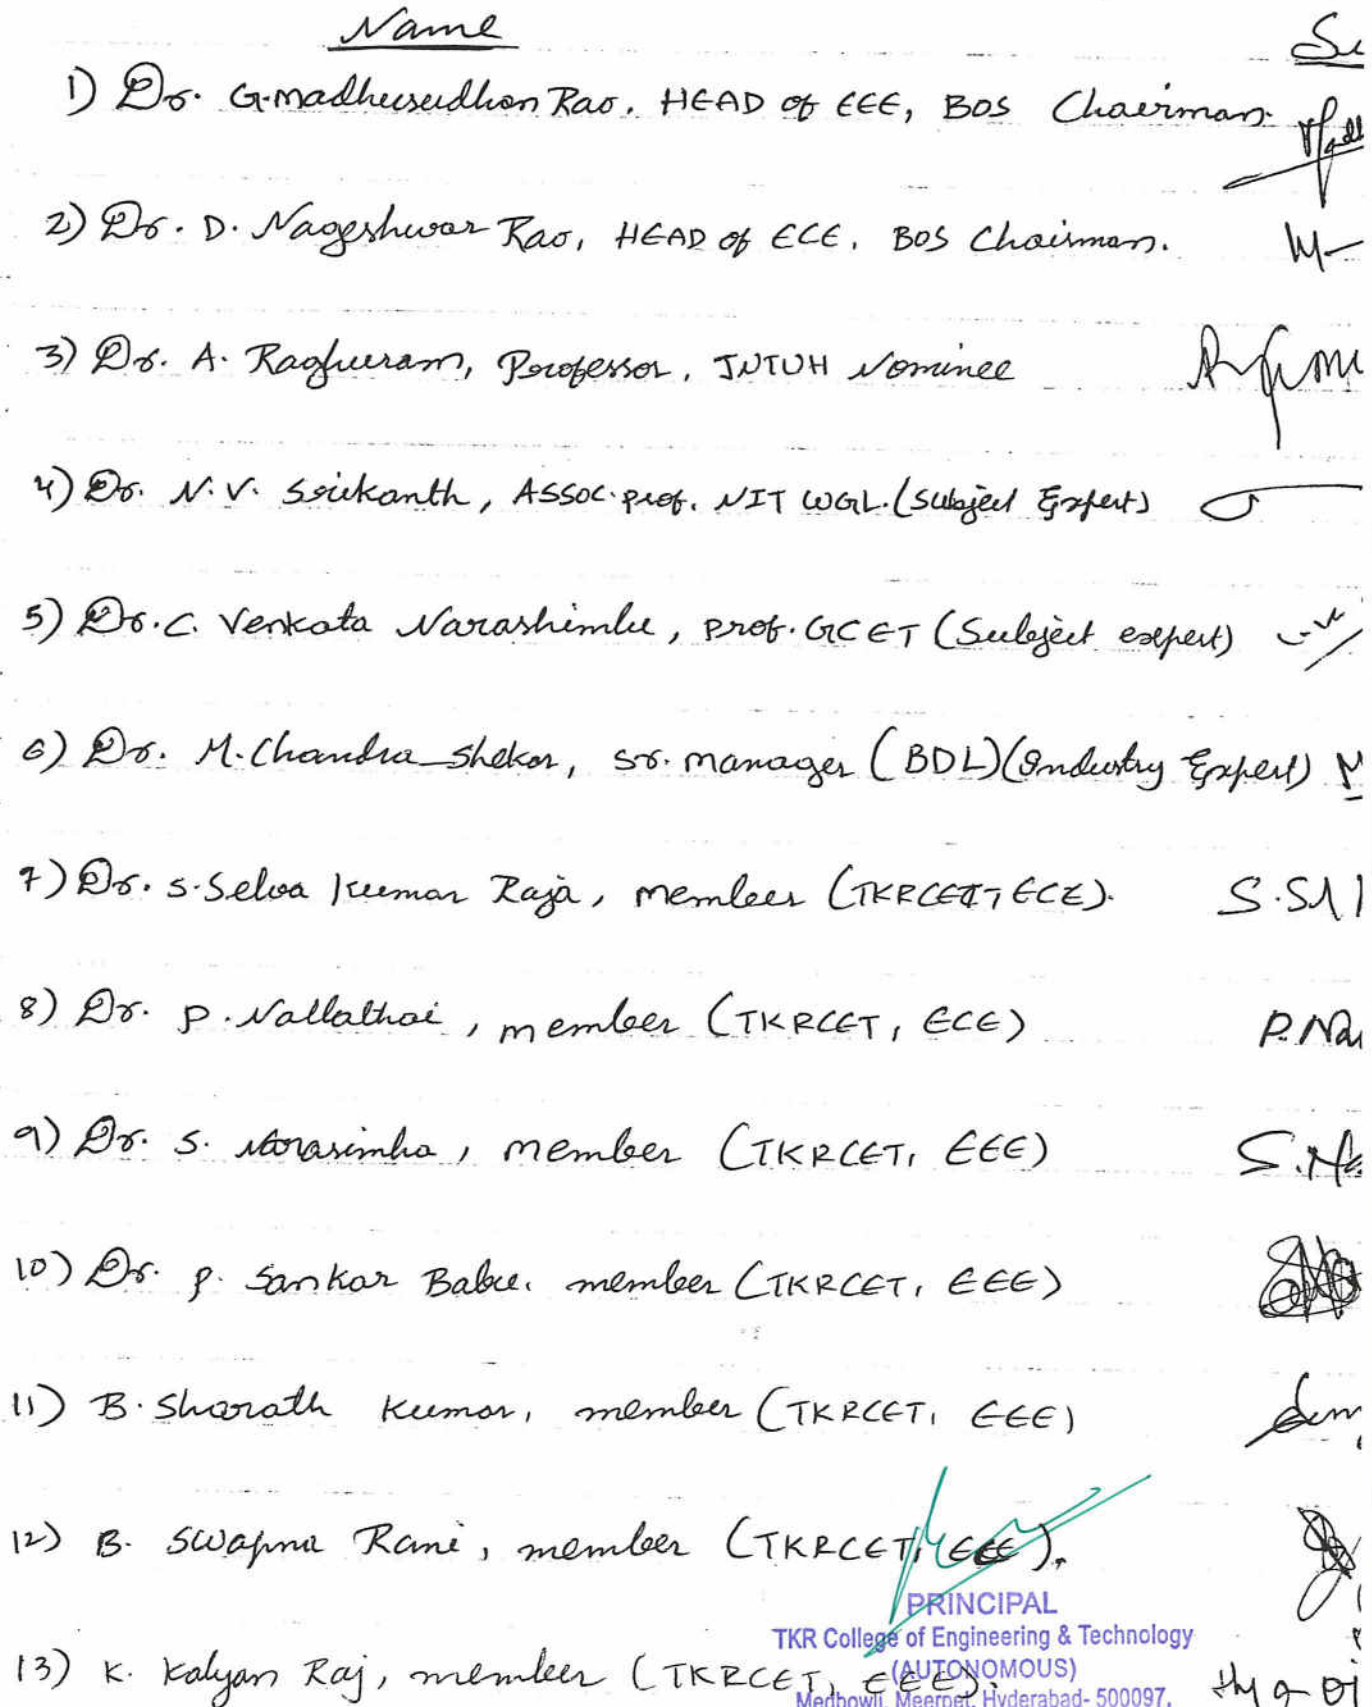 Name
1) Dr. G. Madhusudhan Rao, HEAD of EEE, BOS Chairman.
2) Dr. D. Nageshwar Rao, HEAD of ECE, BOS Chairman.
3) Dr. A. Raghuram, Professor, JNTUH Nominee
4) Dr. N.V. Srikanth, Assoc. prof. NIT WGL. (Subject Expert)
5) Dr. C. Venkata Narashimlu, Prof. GCET (Subject expert)
6) Dr. M. Chandra Shekar, Sr. manager (BDL) (Industry Expert)
7) Dr. S. Selva Kumar Raja, member (TKRCET, ECE). S.
8) Dr. P. Nallathai, member (TKRCET, ECE) P.Na
9) Dr. S. Narasimha, member (TKRCET, EEE) S.Na
10) Dr. P. Sankar Babu. member (TKRCET, EEE)
11) B. Sharath Kumar, member (TKRCET, EEE)
12) B. Swapna Rani, member (TKRCET, EEE).
PRINCIPAL
TKR College of Engineering & Technology
(AUTONOMOUS)
13) K. Kalyan Raj, member (TKRCET, EEE).
Medbowli, Meerpet, Hyderabad- 500097.